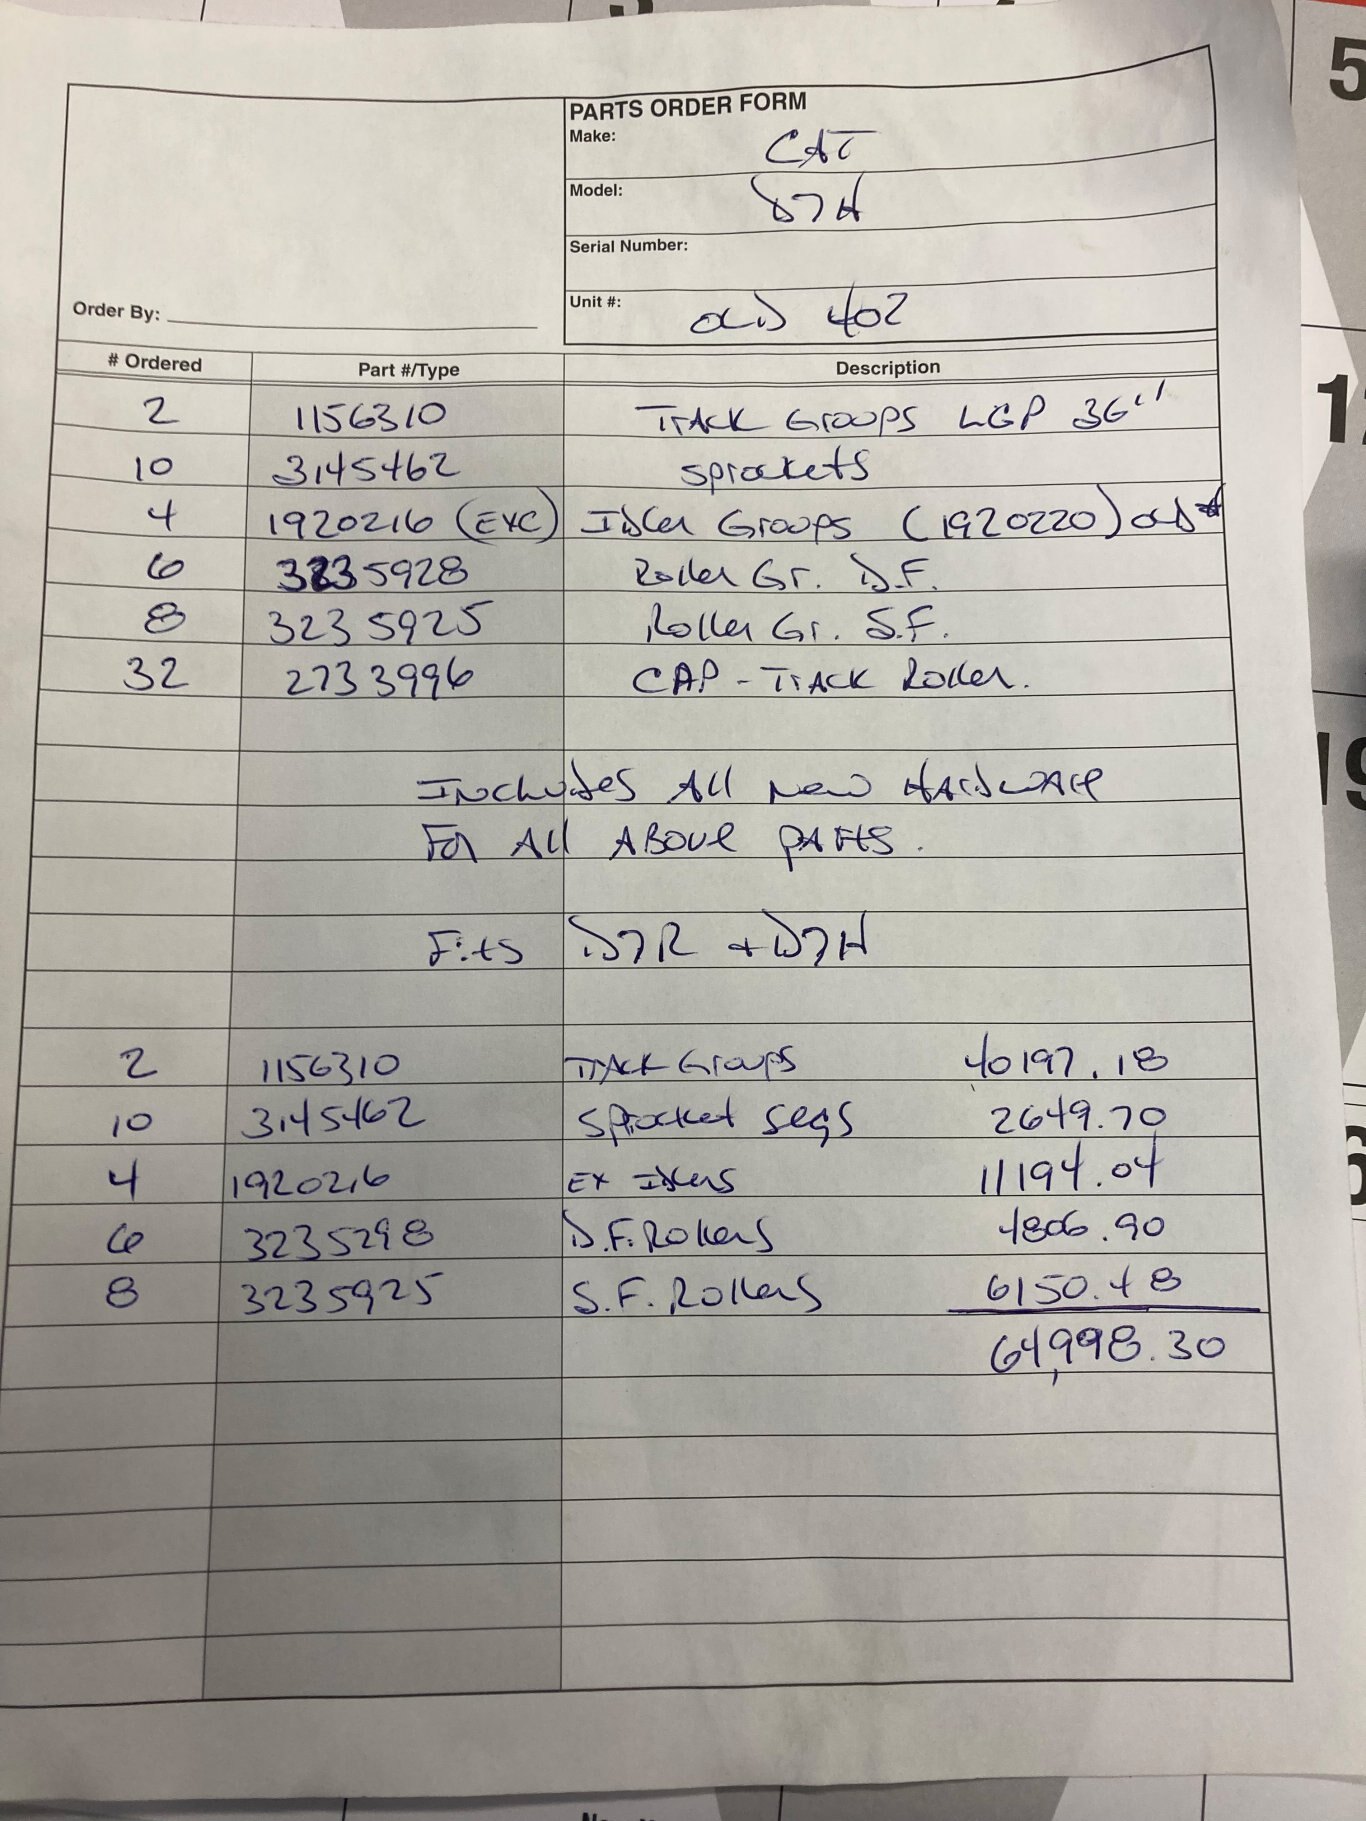 5
12
19
PARTS ORDER FORM
Make: CAT
Model: D7H
Serial Number:
Order By:
Unit #: OLD 402
# Ordered Part #/Type Description
2 1156310 Track Groups LGP 36"
10 3145462 Sprockets
4 1920216 (EXC) Idler Groups (1920220) old #
6 3235928 Roller Gr. D.F.
8 3235925 Roller Gr. S.F.
32 2733996 CAP - Track Roller.
Includes All New Hardware
For All Above parts.
Fits D7R + D7H
2 1156310 Track Groups 40197.18
10 3145462 Sprocket Segs 2649.70
4 1920216 EX Idlers 11194.04
6 3235298 D.F. Rollers 4806.90
8 3235925 S.F. Rollers 6150.48
64,998.30